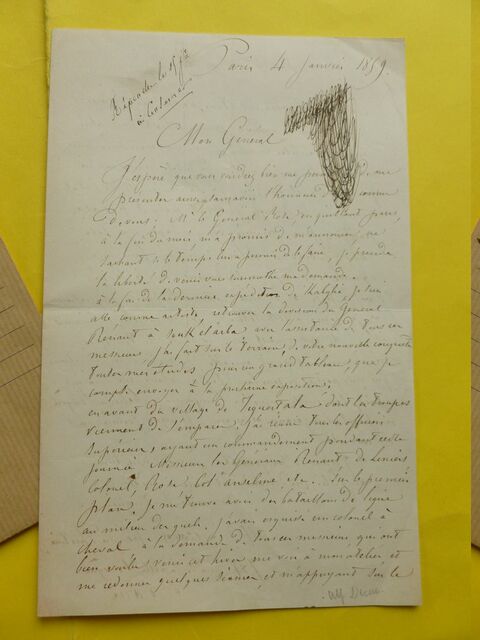 Paris 4 Janvier 1859.
Répondu le
à
Mon Général
J'espère que vous voudrez bien me
présenter sans avoir l'honneur comme
de vous. Mr le General Rose en quittant paris,
à la fin du mois, m'a promis de m'annoncer, ne
sachant si le temps lui a permis de le faire, je prends
la liberté de venir vous ma demande.
à la fin de la dernière expédition de Kabylie je suis
allé comme artiste retrouver la division du Général
Renault à Souk el arba avec l'assistance de tous ces
messieurs j'ai fait sur le terrain de votre nouvelle conquète
toutes mes études pour un grand tableau, que je
compte envoyer à la prochaine exposition;
en avant du village de dont les troupes
viennent de s'emparer, j'ai réuni tous les officiers
supérieurs, ayant un commandement pendant cette
journée Messieurs les Généraux Renault de Liniers
colonel, Rose Col anselme etc. Sur le premier
plan, je me trouve avoir des bataillons de ligne
au milieu desquels j'avais esquissé un colonel à
cheval à la demande de tous ces messieurs, qui ont
bien voulu venir cet hiver me voir à mon atelier et
me redonner quelques séances, et m'appuyant sur le